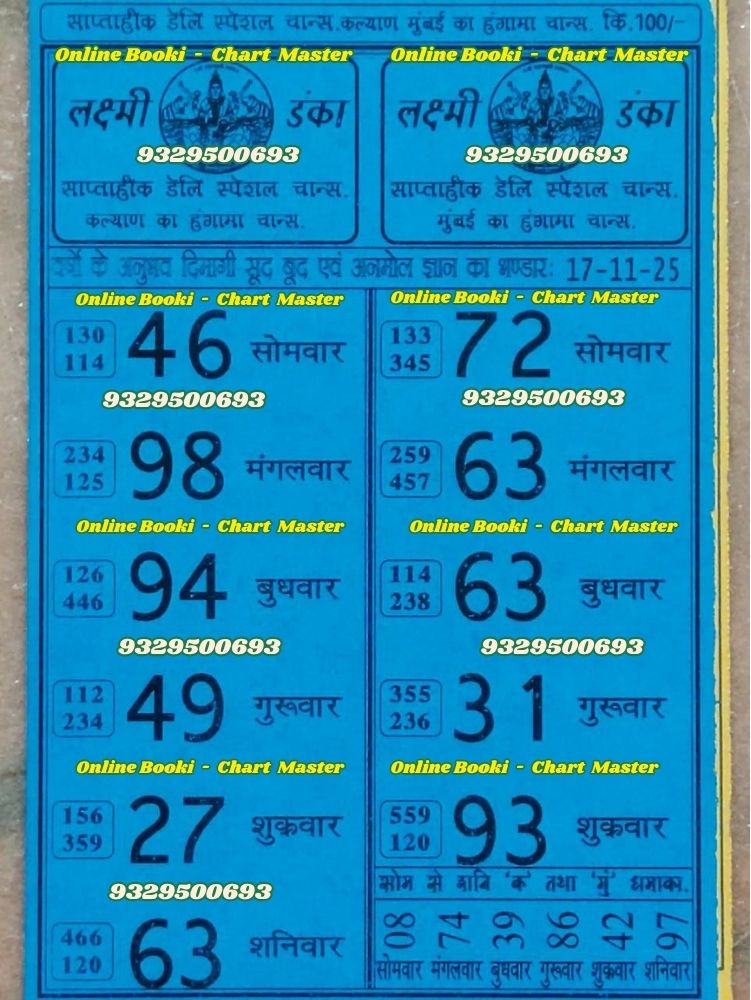 साप्ताहीक डेलि स्पेशल चान्स.कल्याण मुंबई का हंगामा चान्स. कि.100/-
Online Booki - Chart Master
लक्ष्मी डंका
9329500693
साप्ताहीक डेलि स्पेशल चान्स.
कल्याण का हंगामा चान्स.
Online Booki - Chart Master
लक्ष्मी डंका
9329500693
साप्ताहीक डेलि स्पेशल चान्स.
मुंबई का हंगामा चान्स.
वर्षो के अनुभव दिमागी सूद बूद एवं अनमोल ज्ञान का भण्डार: 17-11-25
Online Booki - Chart Master
130
114 46 सोमवार
9329500693
234
125 98 मंगलवार
Online Booki - Chart Master
126
446 94 बुधवार
9329500693
112
234 49 गुरूवार
Online Booki - Chart Master
156
359 27 शुक्रवार
9329500693
466
120 63 शनिवार
Online Booki - Chart Master
133
345 72 सोमवार
9329500693
259
457 63 मंगलवार
Online Booki - Chart Master
114
238 63 बुधवार
9329500693
355
236 31 गुरूवार
Online Booki - Chart Master
559
120 93 शुक्रवार
सोम से शनि 'क' तथा 'मुं' धमाका.
08 74 39 86 42 97
सोमवार मंगलवार बुधवार गुरूवार शुक्रवार शनिवार